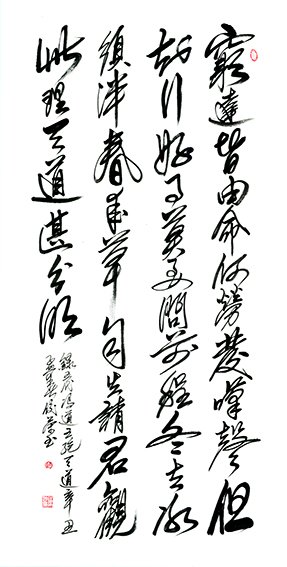 窮達皆由命何勞發嘆聲但
知行好事莫要問前程冬去冰
須泮春來草自生請君觀
此理天道甚分明
錄五代馮道五絕天道辛丑
孟春 書